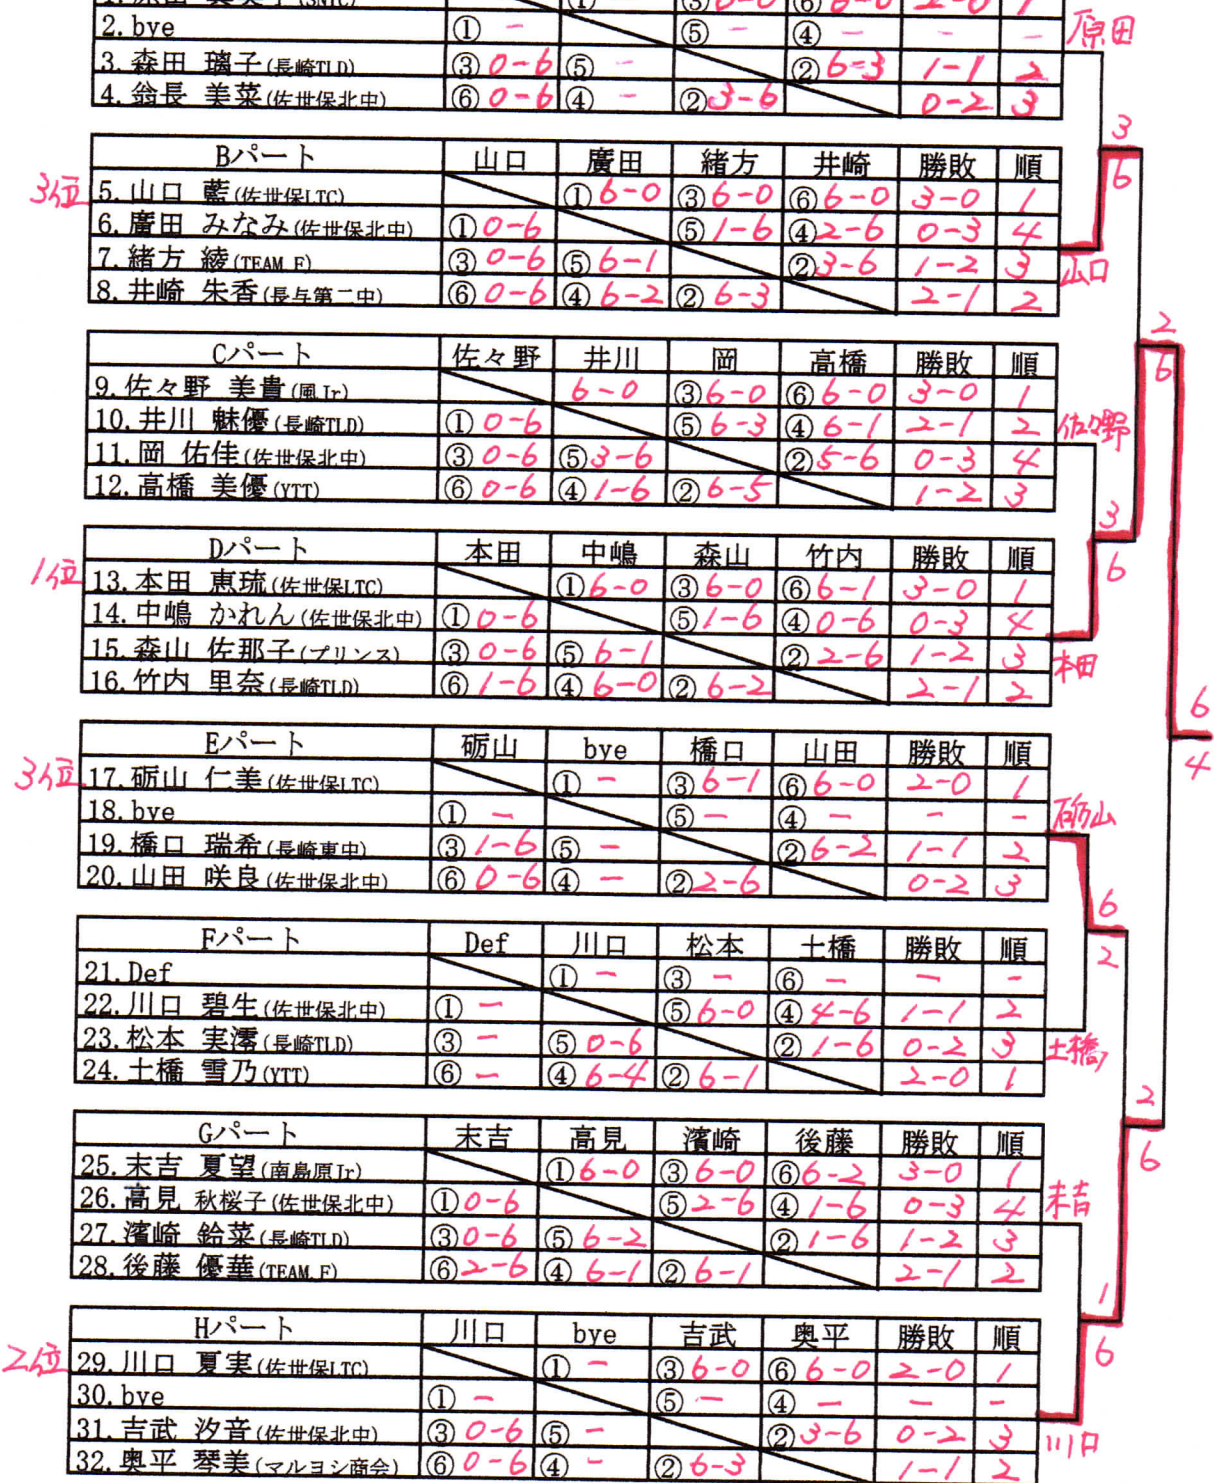 2.bye ① - ⑤ - ④ - - -
原田
3.森田 璃子(長崎TLD) ③ 0-6 ⑤ - ② 6-3 1-1 2
4.翁長 美菜(佐世保北中) ⑥ 0-6 ④ - ② 3-6 0-2 3
3
6
Bパート 山口 廣田 緒方 井崎 勝敗 順
3位 5.山口 藍(佐世保LTC) ① 6-0 ③ 6-0 ⑥ 6-0 3-0 1
6.廣田 みなみ(佐世保北中) ① 0-6 ⑤ 1-6 ④ 2-6 0-3 4
7.緒方 綾(TEAM F) ③ 0-6 ⑤ 6-1 ② 3-6 1-2 3
山口
8.井崎 朱香(長与第二中) ⑥ 0-6 ④ 6-2 ② 6-3 2-1 2
2
6
Cパート 佐々野 井川 岡 高橋 勝敗 順
9.佐々野 美貴(風Jr) 6-0 ③ 6-0 ⑥ 6-0 3-0 1
10.井川 魅優(長崎TLD) ① 0-6 ⑤ 6-3 ④ 6-1 2-1 2
佐々野
11.岡 佑佳(佐世保北中) ③ 0-6 ⑤ 3-6 ② 5-6 0-3 4
12.高橋 美優(YTT) ⑥ 0-6 ④ 1-6 ② 6-5 1-2 3
3
6
Dパート 本田 中嶋 森山 竹内 勝敗 順
1位 13.本田 恵琉(佐世保LTC) ① 6-0 ③ 6-0 ⑥ 6-1 3-0 1
14.中嶋 かれん(佐世保北中) ① 0-6 ⑤ 1-6 ④ 0-6 0-3 4
15.森山 佐那子(プリンス) ③ 0-6 ⑤ 6-1 ② 2-6 1-2 3
本田
16.竹内 里奈(長崎TLD) ⑥ 1-6 ④ 6-0 ② 6-2 2-1 2
6
4
Eパート 砺山 bye 橋口 山田 勝敗 順
3位 17.砺山 仁美(佐世保LTC) ① - ③ 6-1 ⑥ 6-0 2-0 1
18.bye ① - ⑤ - ④ - - -
砺山
19.橋口 瑞希(長崎東中) ③ 1-6 ⑤ - ② 6-2 1-1 2
20.山田 咲良(佐世保北中) ⑥ 0-6 ④ - ② 2-6 0-2 3
6
2
Fパート Def 川口 松本 土橋 勝敗 順
21.Def ① - ③ - ⑥ - - -
22.川口 碧生(佐世保北中) ① - ⑤ 6-0 ④ 4-6 1-1 2
23.松本 実澪(長崎TLD) ③ - ⑤ 0-6 ② 1-6 0-2 3
土橋
24.土橋 雪乃(YTT) ⑥ - ④ 6-4 ② 6-1 2-0 1
2
6
Gパート 末吉 高見 濱崎 後藤 勝敗 順
25.末吉 夏望(南島原Jr) ① 6-0 ③ 6-0 ⑥ 6-2 3-0 1
26.高見 秋桜子(佐世保北中) ① 0-6 ⑤ 2-6 ④ 1-6 0-3 4
末吉
27.濱崎 鈴菜(長崎TLD) ③ 0-6 ⑤ 6-2 ② 1-6 1-2 3
28.後藤 優華(TEAM F) ⑥ 2-6 ④ 6-1 ② 6-1 2-1 2
1
6
Hパート 川口 bye 吉武 奥平 勝敗 順
2位 29.川口 夏実(佐世保LTC) ① - ③ 6-0 ⑥ 6-0 2-0 1
30.bye ① - ⑤ - ④ - - -
31.吉武 汐音(佐世保北中) ③ 0-6 ⑤ - ② 3-6 0-2 3
川口
32.奥平 琴美(マルヨシ商会) ⑥ 0-6 ④ - ② 6-3 1-1 2